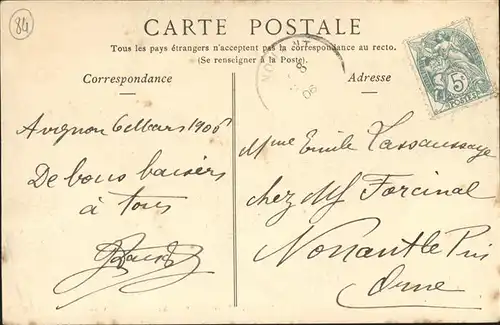 84
CARTE POSTALE
Tous les pays étrangers n'acceptent pas la correspondance au recto.
(Se renseigner à la Poste).
Correspondance
Adresse
NO NT
8
06
5c
POSTES
Avignon 6 Mars 1906
De bons baisers
à tous
Mme Emile
chez Mr Forcinal
Nonant le Pin
Orne